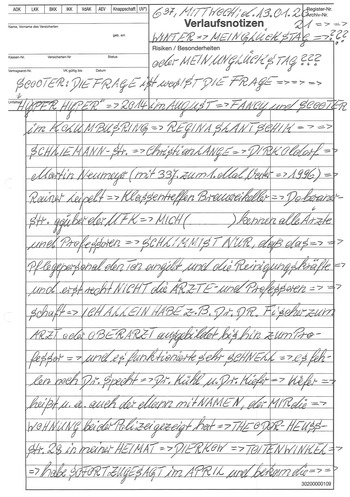 AOK LKK BKK IKK VdAK AEV Knappschaft UV*)
637, MITTWOCH; d. 13.01.2
Register-Nr.
Archiv-Nr.
Name, Vorname des Versicherten
Verlaufsnotizen
21 => =>
geb. am
WINTER => MEIN GLÜCKSTAG => ???
Risiken / Besonderheiten
oder MEIN UNGLÜCKSTAG ???
Kassen-Nr. Versicherten-Nr. Status
Vertragsarzt-Nr. VK gültig bis Datum
SCOOTER: DIE FRAGE IST was IST DIE FRAGE => => =>
HYPER HYPER => 2014 im AUGUST => FANCY und SCOOTER
im KOLUMBUSRING => REGINA SLANTSCHIK => => =>
SCHLIEMANN-Str. => Christian LANGE => DIRK Oldorf =>
Martin Neumeyer (mit 33 zum Mal Vater => 1996) =>
Rainer Leipelt => Klassentreffen Brauereikeller => Doberaner-
Str. gegüber der UFK => MICH ( ) kennen alle Ärzte
und Professoren => SCHLIMM IST NUR, daß das => =>
Pflegepersonal den Ton angibt und die Reinigungskräfte =>
und erst recht NICHT die ÄRZTE- und Professoren => =>
schaft => ICH ALLEIN HABE z.B. Dr. DR. Fischer zum
ARZT oder OBERARZT ausgebildet bis hin zum Pro-
fessor => und es funktionierte sehr SCHNELL => es feh-
len noch Dr. Specht => Dr. Kühl u. Dr. Kiefer => Kiefer =>
heißt u. a. auch der Mann mit NAMEN, der MIR die =>
WOHNUNG bei der Polizei gezeigt hat => THEODOR-HEUSS-
Str. 28 in meiner HEIMAT => DIERKOW => TOITENWINKEL =>
=> habe SOFORT ZUGESAGT im APRIL und bekam die => =>
30200000109